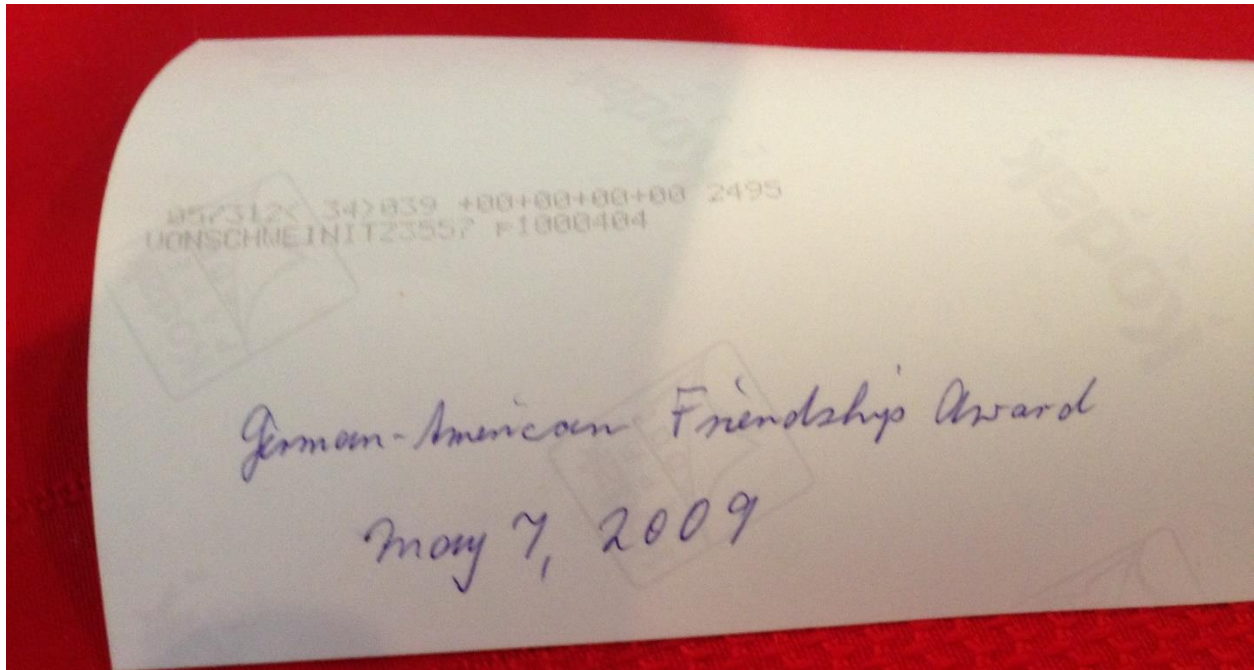 057312< 34>039 +00+00+00+00 2495
VONSCHWEINITZ3557 F1000404
German-American Friendship Award
May 7, 2009
Kodak